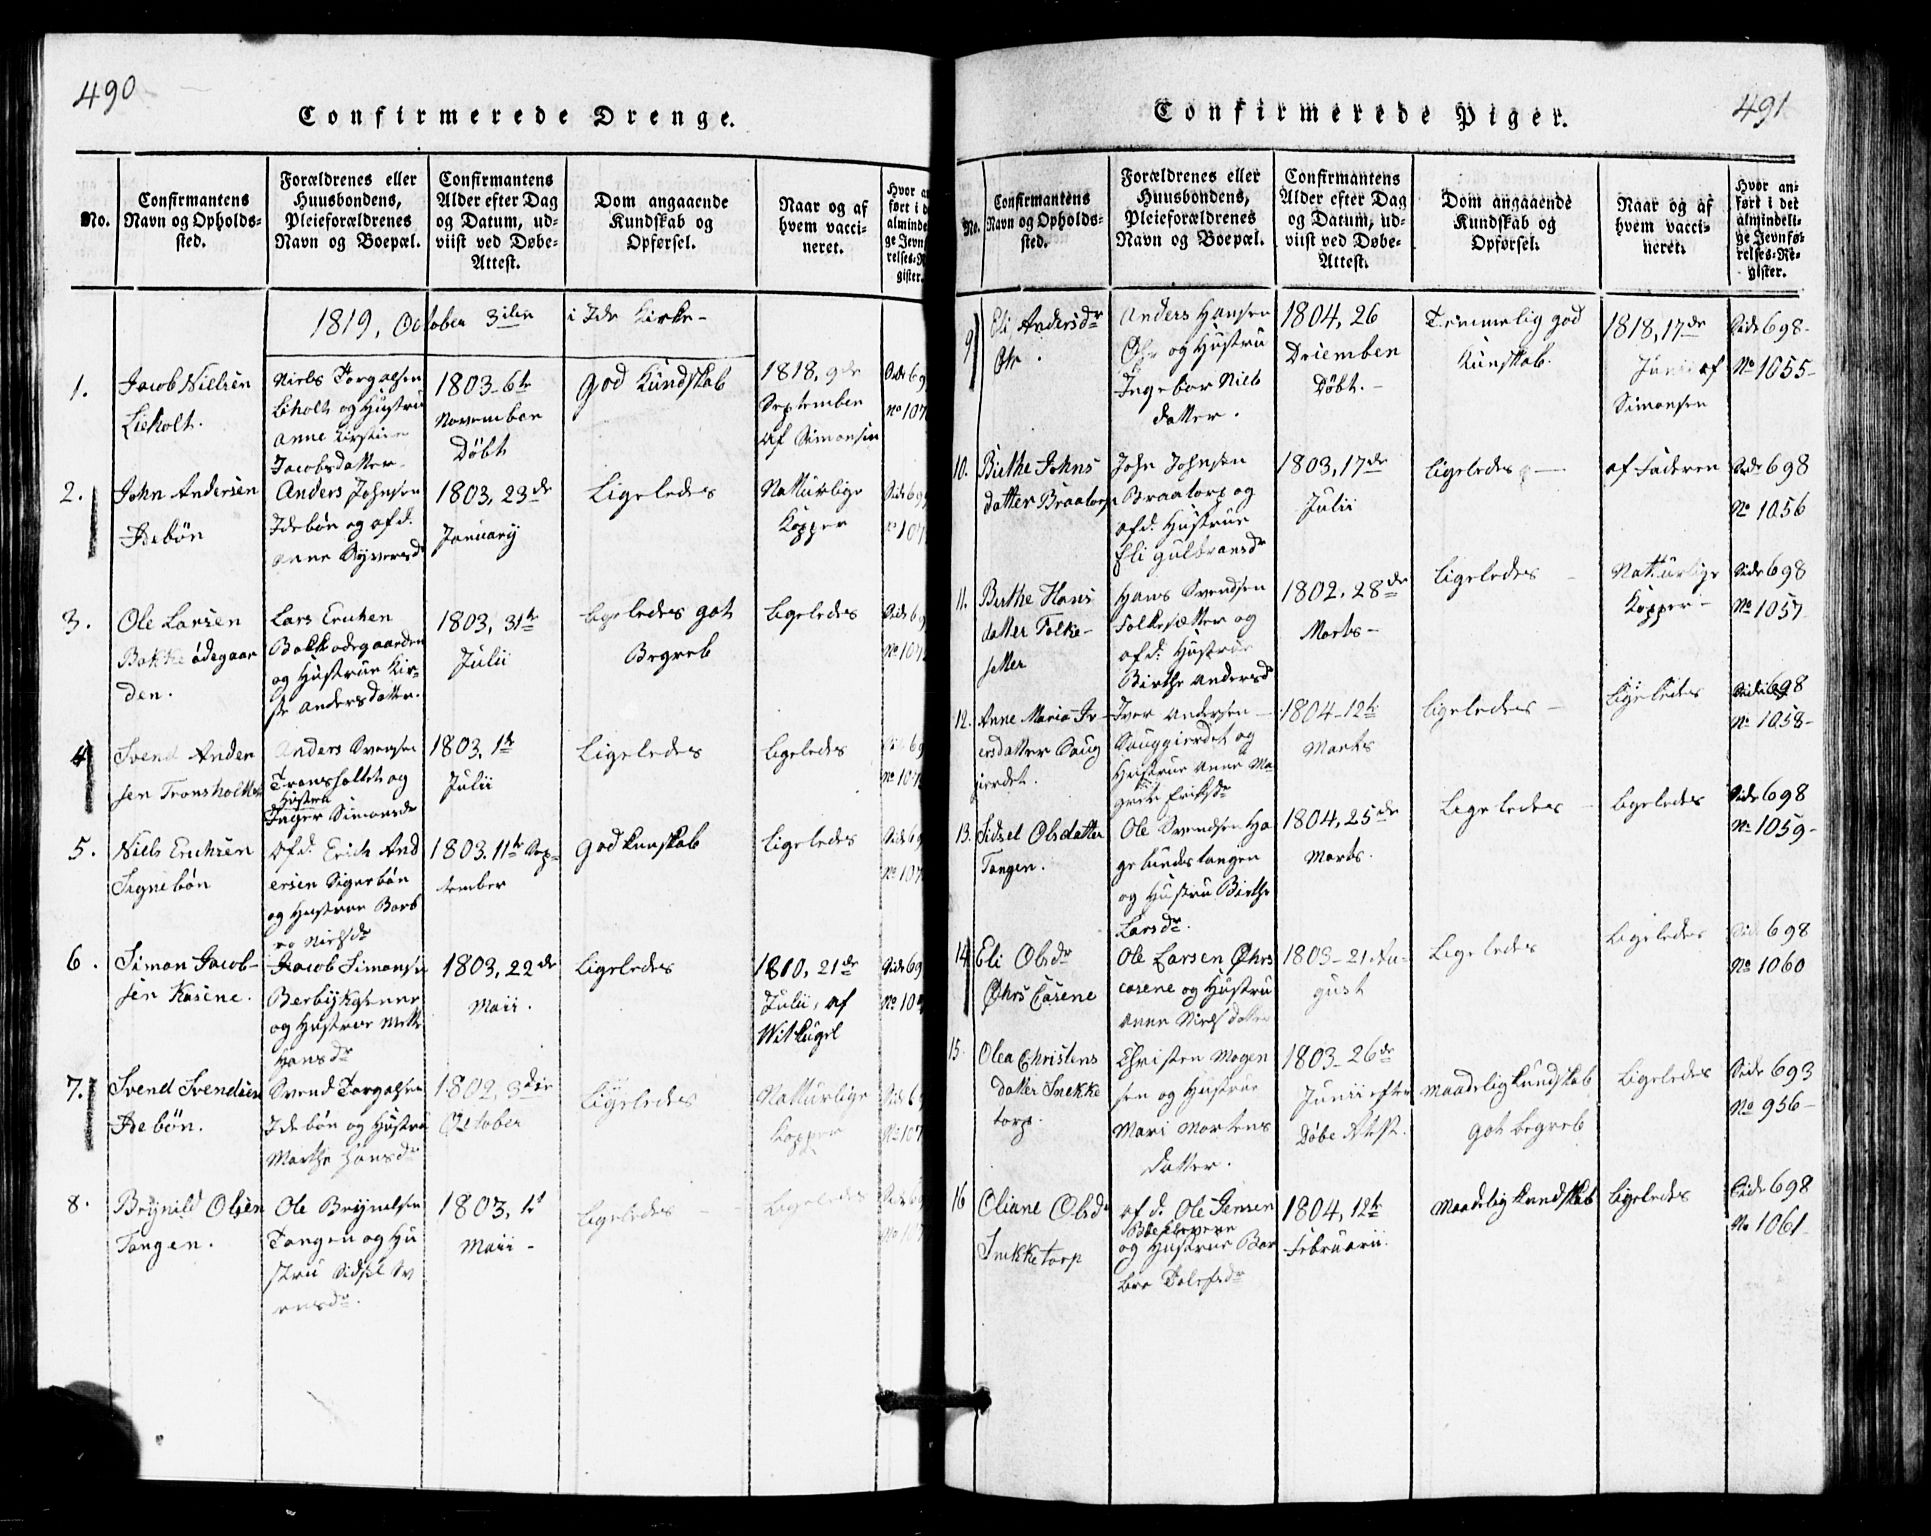 490
Confirmerede Drenge.
No.
Confirmantens
Navn og Opholds-
sted.
Forældrenes eller
Huusbondens,
Pleieforældrenes
Navn og Boepæl.
Confirmantens
Alder efter Dag
og Datum, ud-
viist ved Døbe-
Attest.
Dom angaaende
Kundskab og
Opførsel.
Naar og af
hvem vacci-
neret.
1819, October 3die i Ide Kirke-
1.
Jacob Nielsen
Lieholt.
Niels Torgalsen
Liholt og Hustru
Anne Kirstine
Jacobsdatter
1803-6te
November
Døbt
god Kundskab
1818, 9de
September
af Simonsen
2.
John Andersen
Idebøn
Anders Johnsen
Idebøn og afd.
Anne Syversd
1803, 23de
Januarij
Ligeledes
Natturlige
Kopper
3.
Ole Larsen
Bakke ødegaar
den.
Lars Erichsen
Bakkødegaarden
og Hustrue Kir-
ste Andersdatter.
1803, 31te
Julii
ligeledes got
Begreb
ligeledes
4
Svend Ander
sen Tronsholtet
Anders Svensen
Tronsholtet og
Hustru
Inger Simonsdr
1803, 1te
Julii
Ligeledes
ligeledes
5.
Niels Erichsen
Signebøn
afd. Erich And
ersen Signebøn
og Hustrue Barb
ro Nielsdr
1803. 11te Sep-
tember
god kunskab
ligeledes
6.
Simon Jacob-
sen Kasene.
Jacob Simonsen
Berby Kasene
og Hustrue Mette
Hansdr
1803, 22de
Maii.
ligeledes
1810, 21de
Julii, af
Witlugel
7.
Svend Svendsen
Idebøn.
Svend Torgalsen
Idebøn og Hustru
Marthe Hansdr
1802, 3die
October
ligeledes
Natturlige
Kopper
8.
Brynild Olsen
Tangen.
Ole Brynelsen
Tangen og Hu
stru Sidsel Sv
ensdr.
1803, 1st
Maii-
ligeledes
ligeledes
491
Confirmerede Piger.
No.
Confirmantens
Navn og Opholds-
sted.
Forældrenes eller
Huusbondens,
Pleieforældrenes
Navn og Boepæl.
Confirmantens
Alder efter Dag
og Datum, ud-
viist ved Døbe-
Attest.
Dom angaaende
Kundskab og
Opførsel.
Naar og af
hvem vacci-
neret.
Hvor an-
ført i det
almindeli-
ge Jevnfø-
relses-Re-
gister.
9
Eli Andersdr
Øhr.
Anders Hansen
Øhr og Hustru
Ingebor Niels
datter.
1804, 26
Driember
Døbt.-
Temmelig god
Kunskab.
1818, 17de
Junii af
Simonsen
Side 698-
No 1055-
10.
Birthe Johns
datter Braatorp
John Johnsen
Braatorp og
afd. Hustrue
Eli Gulbransdr
1803, 17de
Julii
ligeledes
af Faderen
Side 698
No 1056
11.
Birthe Hans
datter Folke-
setter
Hans Svendsen
Folkesætter og
afd: Hustrue
Birthe Andersd
1802. 28de
Marts-
ligeledes
Natturlige
Kopper-
Side 698
No 1057
12.
Anne Maria Iv-
ersdatter Saug
jerdet.
Iver Andersen
Sauggierdet og
Hustrue Anne Ma
grete Eriksdr
1804-12te
Marts
ligeledes-
ligeledes
Side 698
No 1058-
13.
Sidsel Olsdatter
Tangen.
Ole Svendsen Ha
gelundstangen
og Hustru Birthe
Larsdr.
1804, 25de
Marts.
Ligeledes
ligeledes
Side 698
No 1059-
14
Eli Olsdr
Øhrs Casene
Ole Larsen Øhrs
casene og Hustru
Anne Niels datter
1803-21 Au-
gust
Ligeledes
ligeledes
Side 698
No 1060
15.
Olea Christens
datter Snekke
torp.
Christen Mogen
sen og Hustrue
Mari Mortens
datter.
1803-26de
Junii efter
Døbe Atest.
maadelig kundskab
got begreb
ligeledes
Side 693
No 956-
16
Oliane Olsdr
Snekketorp
afd. Ole Jensen
og Hustrue Bar
bro Tolefsdr
1804, 12te
Februarii
Maadelig kundskab
ligeledes
Side 698
No 1061